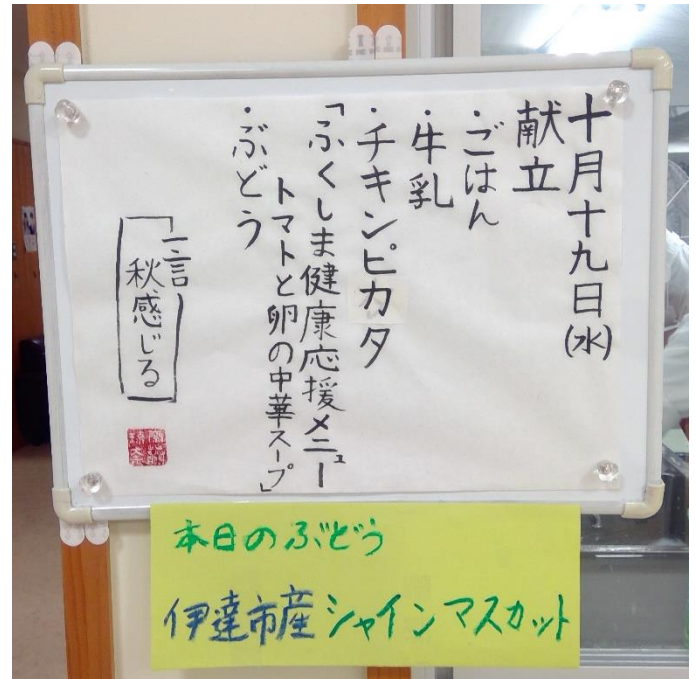 十月十九日(水)
献立
・ごはん
・牛乳
・チキンピカタ
「ふくしま健康応援メニュー
トマトと卵の中華スープ」
・ぶどう
一言
秋感じる
本日のぶどう
伊達市産シャインマスカット